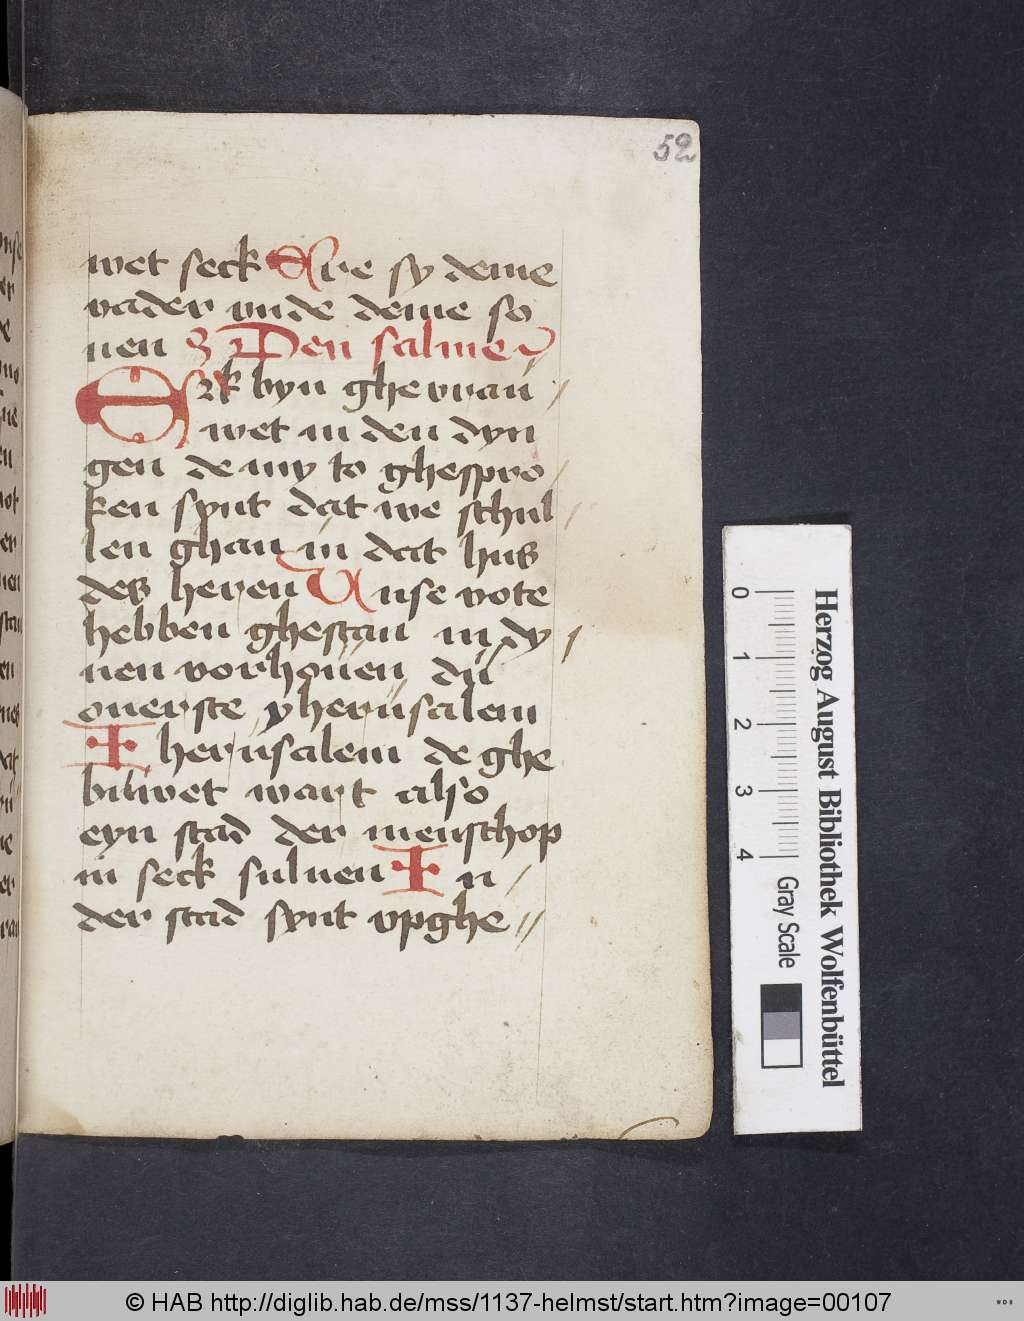 52
wet seck Ere sy deme
vader vnde deme so
nen Den salme
Eck byn ghe vrau
wet in den dyn
gen de my to ghespro
ken synt dat we schul
len ghan in dat hus
des heren Unse vote
hebben ghestan in dy
nen vorhouen du
ouerste yherusalem
Iherusalem de ghe
buwet wart also
eyn stad der menschop
in seck suluen In
der stad synt vpghe
0 1 2 3 4
Gray Scale
Herzog August Bibliothek Wolfenbüttel
© HAB http://diglib.hab.de/mss/1137-helmst/start.htm?image=00107